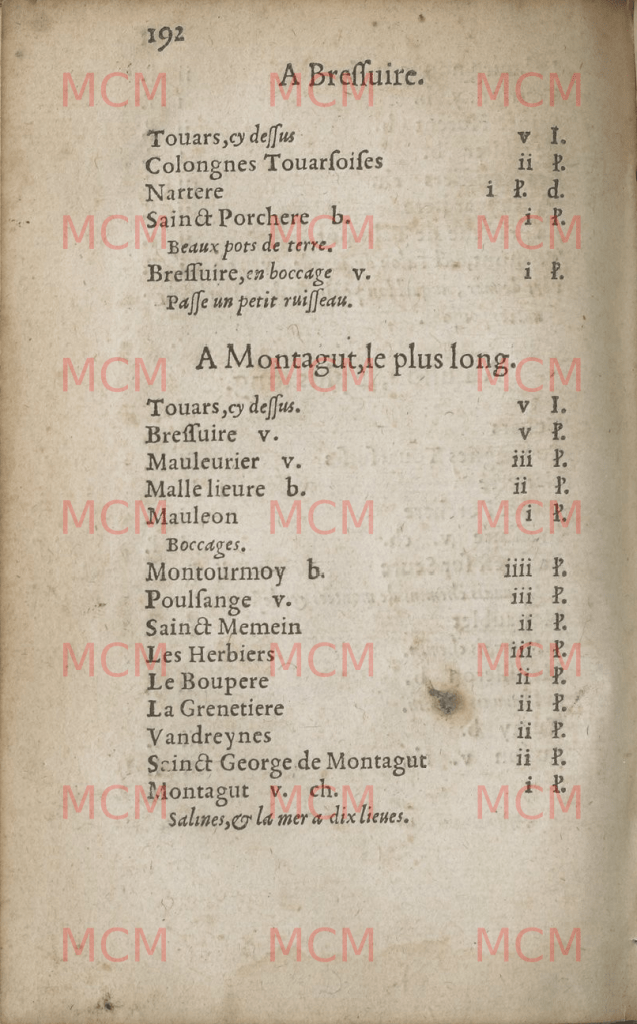 192
A Breſſuire.
Touars, cy deſſus v I.
Colongnes Touarſoiſes ii ł.
Nartere i ł. d.
Sainct Porchere b. i ł.
Beaux pots de terre.
Breſſuire, en boccage v. i ł.
Paſſe un petit ruiſſeau.
A Montagut, le plus long.
Touars, cy deſſus. v I.
Breſſuire v. v ł.
Mauleurier v. iii ł.
Malle lieure b. ii ł.
Mauleon i ł.
Boccages.
Montourmoy b. iiii ł.
Poulſange v. iii ł.
Sainct Memein ii ł.
Les Herbiers iii ł.
Le Boupere ii ł.
La Grenetiere ii ł.
Vandreynes ii ł.
Sainct George de Montagut ii ł.
Montagut v. ch. i ł.
Salines, & la mer a dix lieues.
MCM MCM MCM
MCM MCM MCM
MCM MCM MCM
MCM MCM MCM
MCM MCM MCM
MCM MCM MCM
MCM MCM MCM